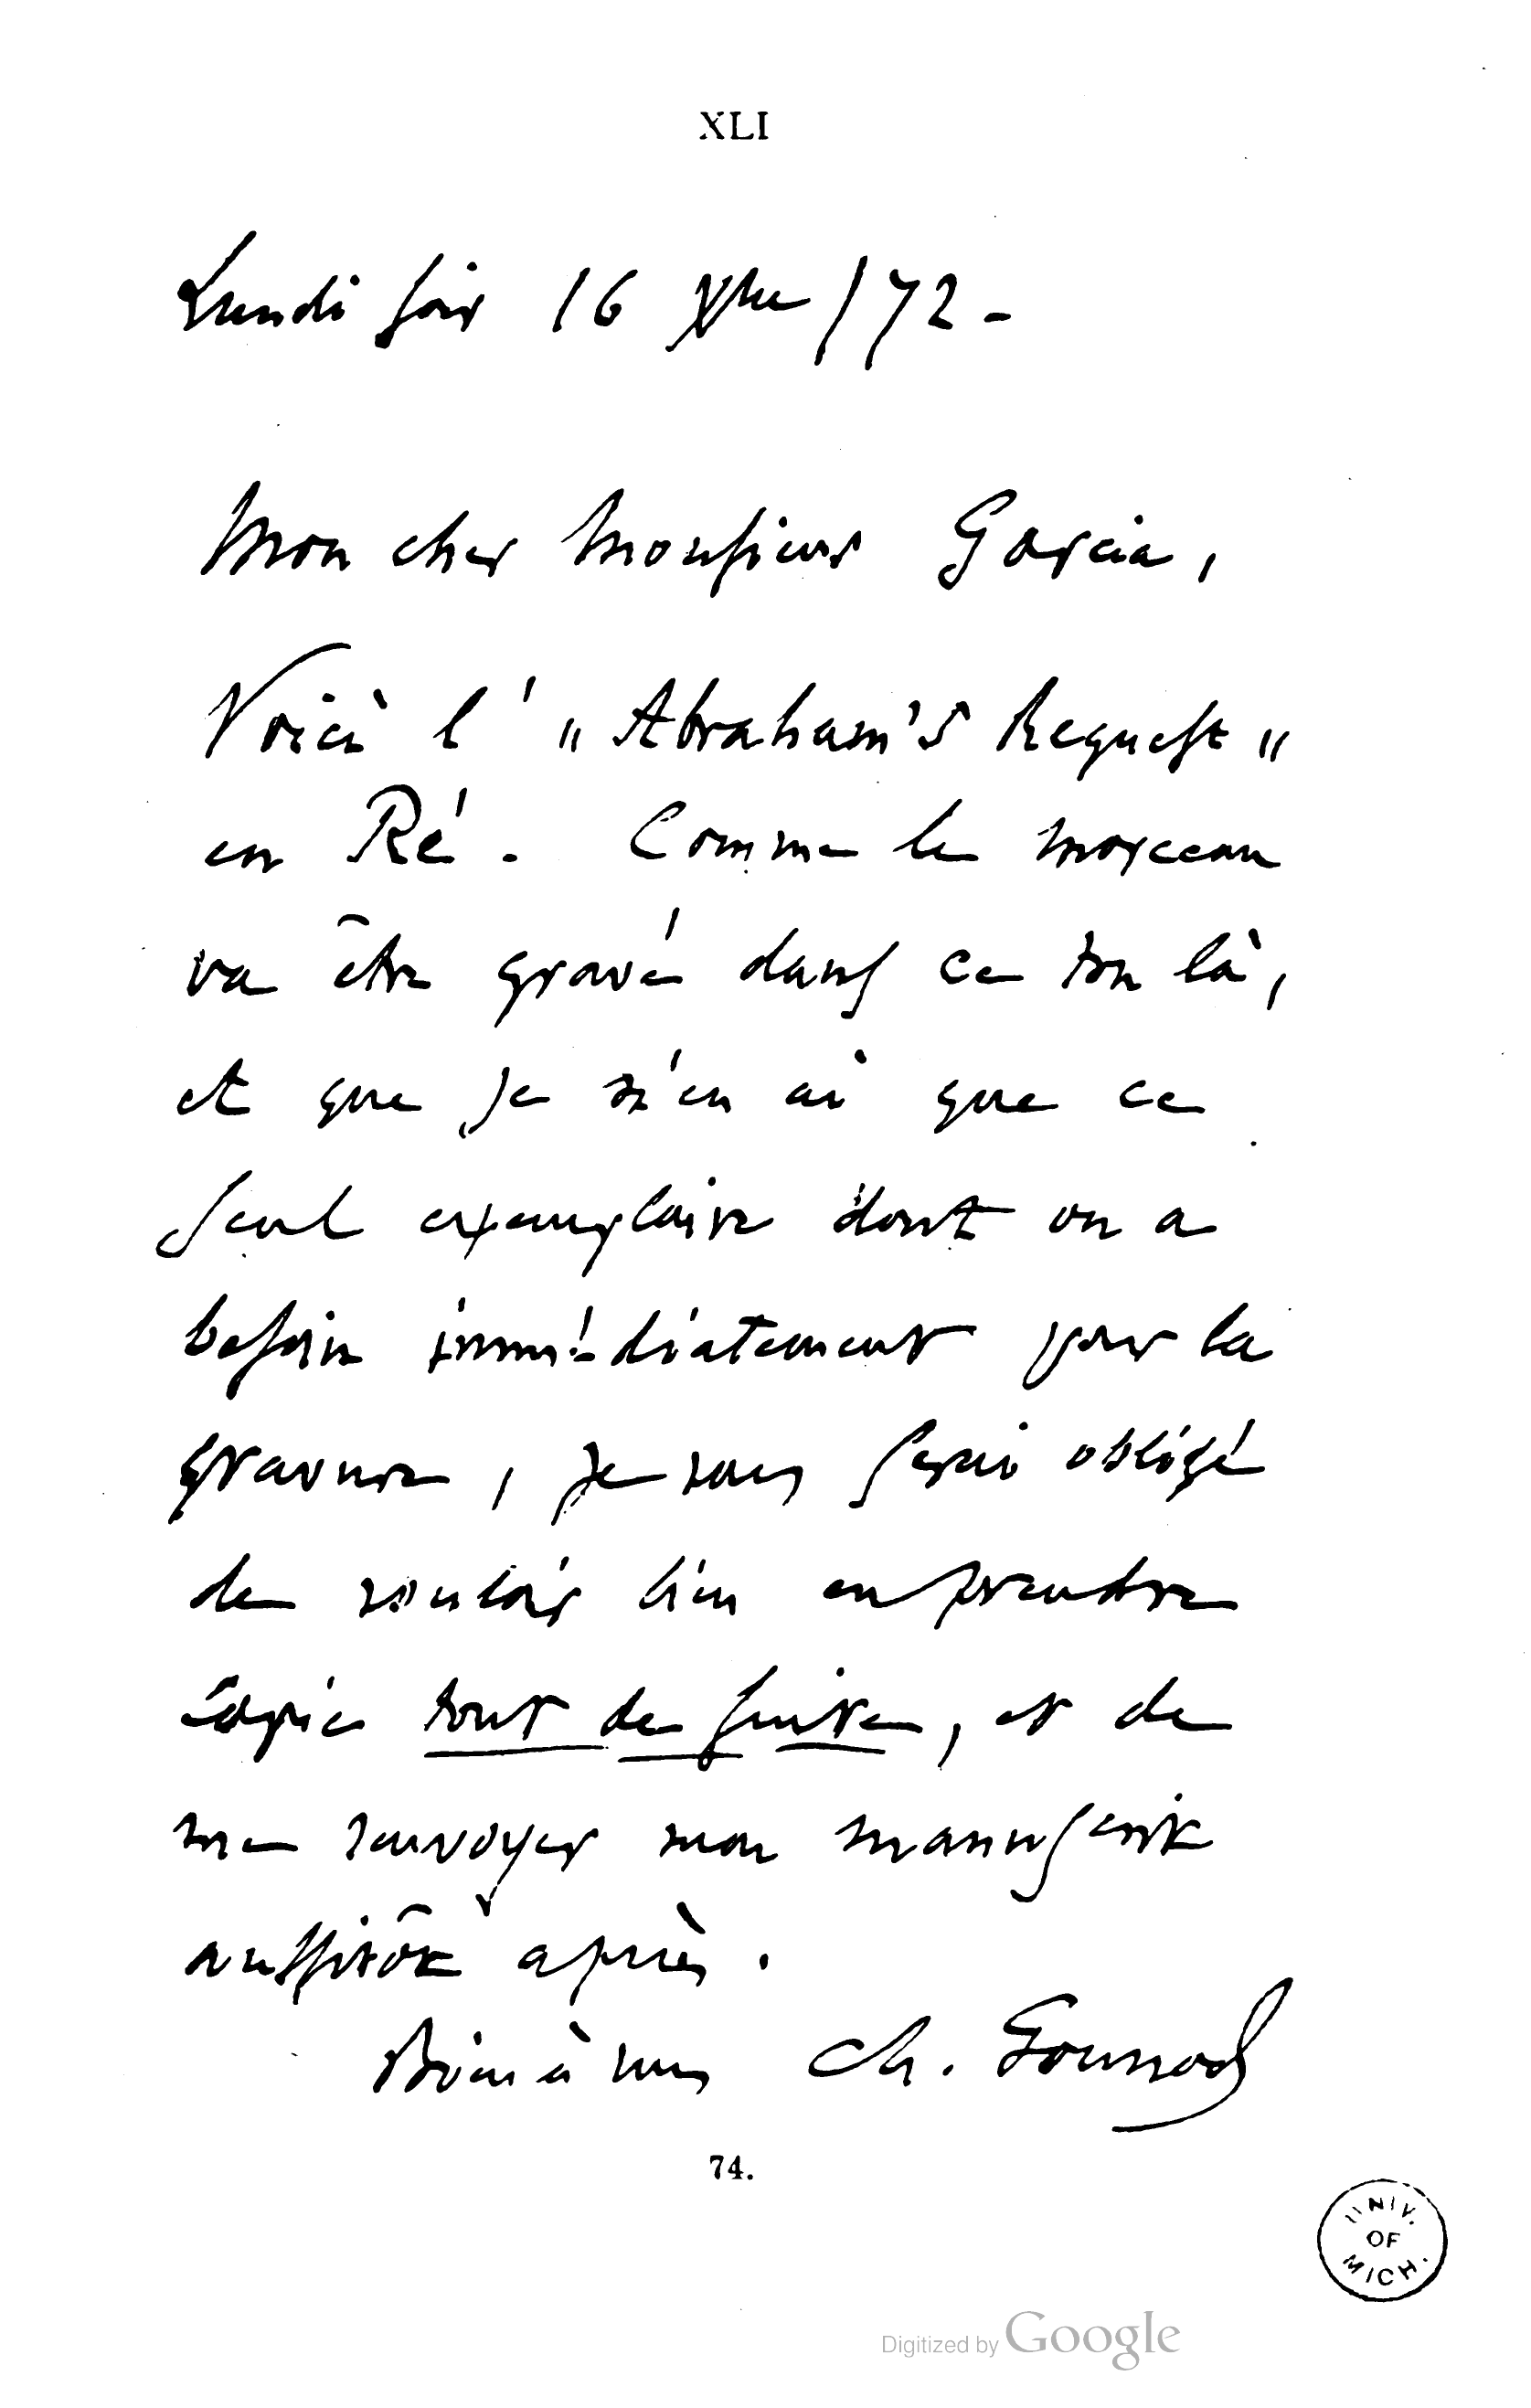 XLI
Lundi soir 16 Xbre / 72 -
Mon cher Monsieur Garcia,
Voici l' " Abraham's Request "
en Ré. Comme le morceau
va être gravé dans ce ton là,
et que je n'en ai que ce
seul exemplaire dont on a
besoin immédiatement pour la
gravure, je vous serai obligé
de vouloir bien en prendre
copie tout de suite, et de
me renvoyer mon manuscrit
aussitôt après.
Bien à vous Ch. Gounod
74.
UNIV.
OF
MICH.
Digitized by Google